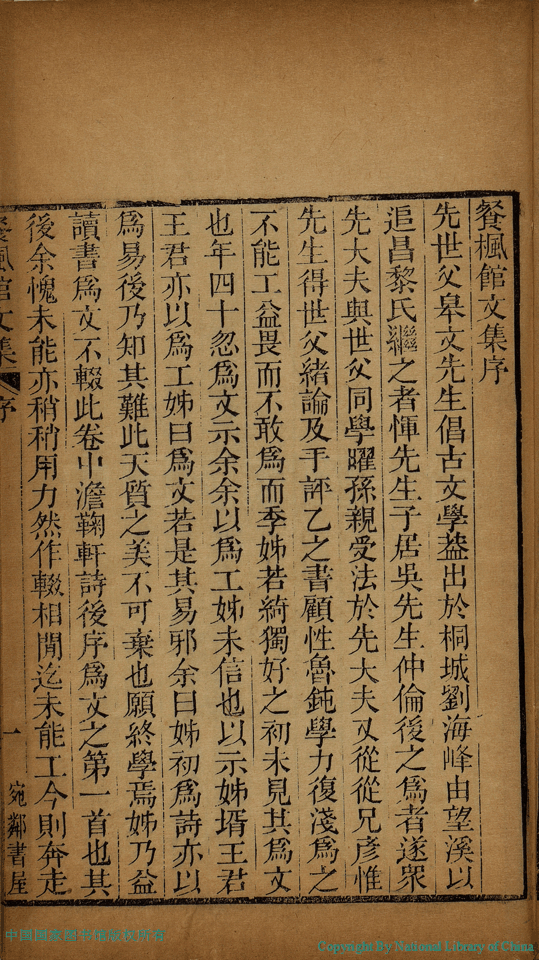 餐楓館文集序
先世父皋文先生倡古文學葢出於桐城劉海峰由望溪以
追昌黎氏繼之者惲先生子居吳先生仲倫後之爲者遂衆
先大夫與世父同學曜孫親受法於先大夫又從從兄彥惟
先生得世父緒論及手評乙之書顧性魯鈍學力復淺爲之
不能工益畏而不敢爲而季姊若綺獨好之初未見其爲文
也年四十忽爲文示余余以爲工姊未信也以示姊壻王君
王君亦以爲工姊曰爲文若是其易邪余曰姊初爲詩亦以
爲易後乃知其難此天質之美不可棄也願終學焉姊乃益
讀書爲文不輟此卷中澹鞠軒詩後序爲文之第一首也其
後余愧未能亦稍稍用力然作輟相閒迄未能工今則奔走
餐楓館文集 序 一 宛鄰書屋
中国国家图书馆版权所有
Copyright By National Library of China